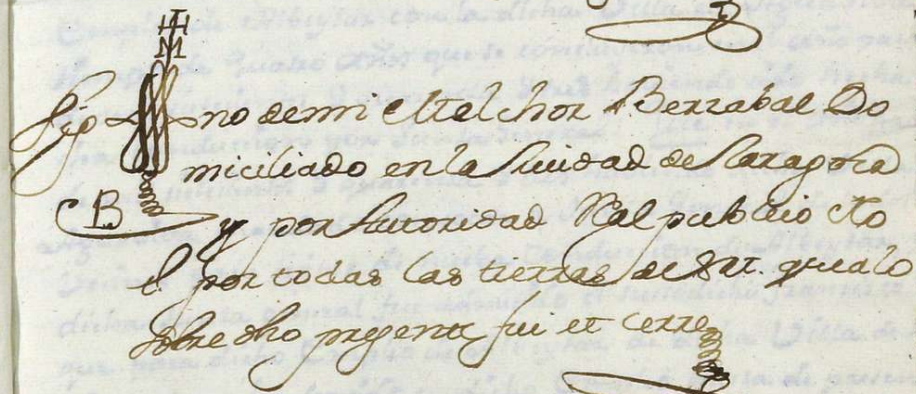 Sig no de mi Melchor Berrabal Do
miciliado en la Ciudad de Zaragoza
y por Autoridad Real publico No
t por todas las tierras de S M. que a lo
sobre dho presente fui et cerre